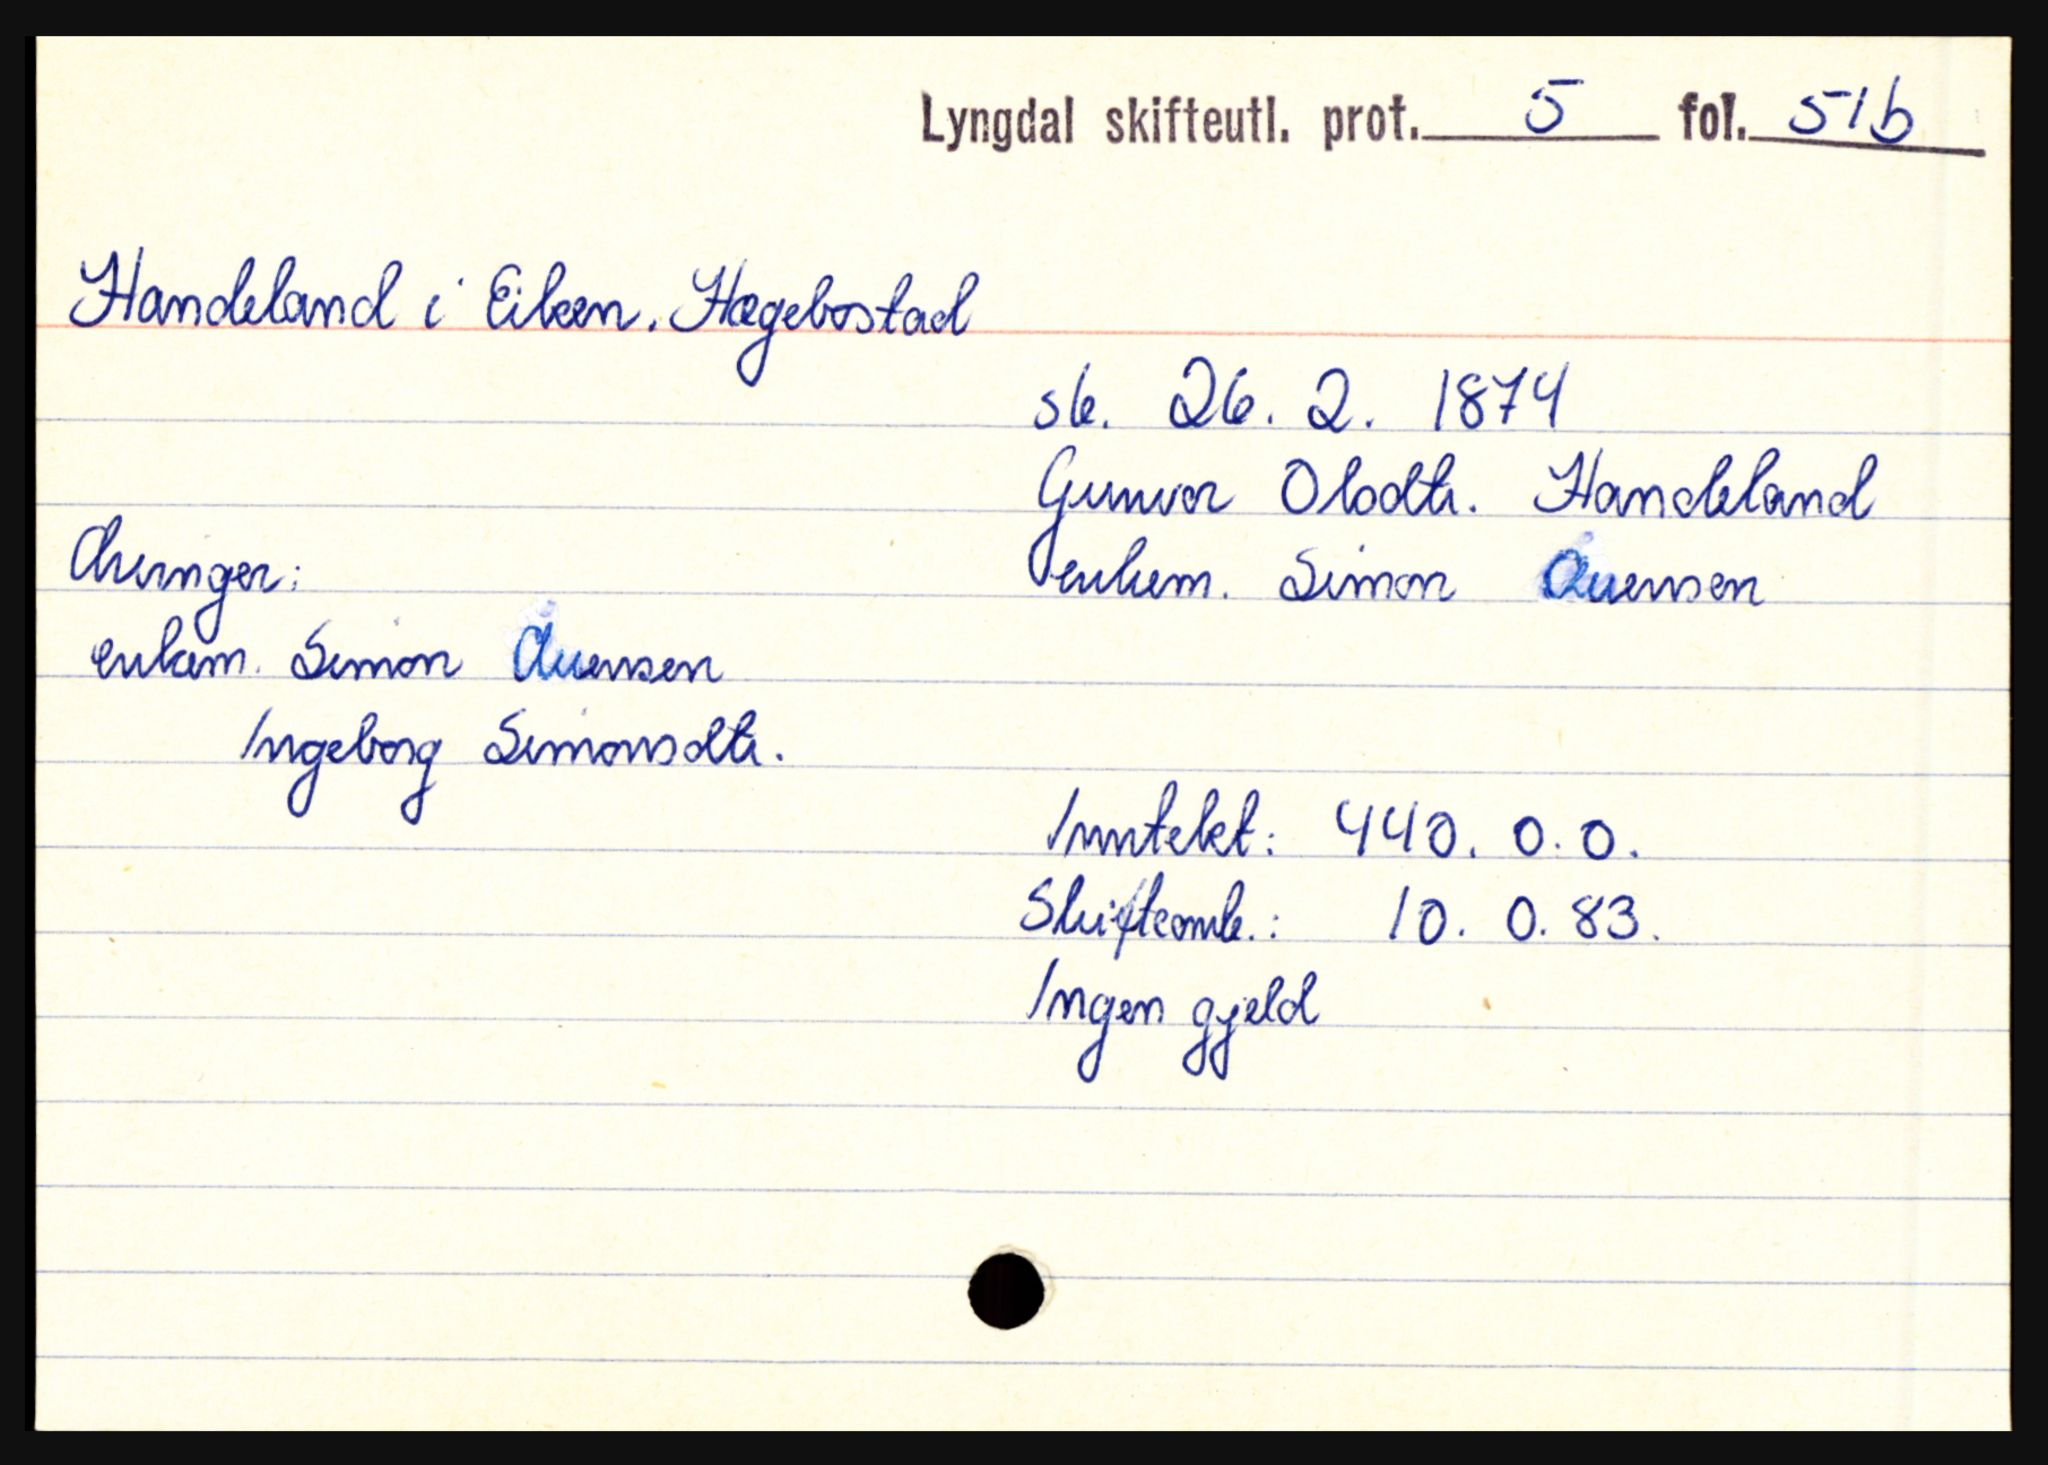 Lyngdal skifteutl. prot. 5 fol. 51b
Handeland i Eiken. Hægebostad
sk. 26. 2. 1874
Gunvor Olsdtr. Handeland
enkem. Simon Auensen
Arvinger:
enkem. Simon Auensen
Ingeborg Simonsdtr.
Inntekt: 440. 0. 0.
Skifteomk.: 10. 0. 83.
Ingen gjeld